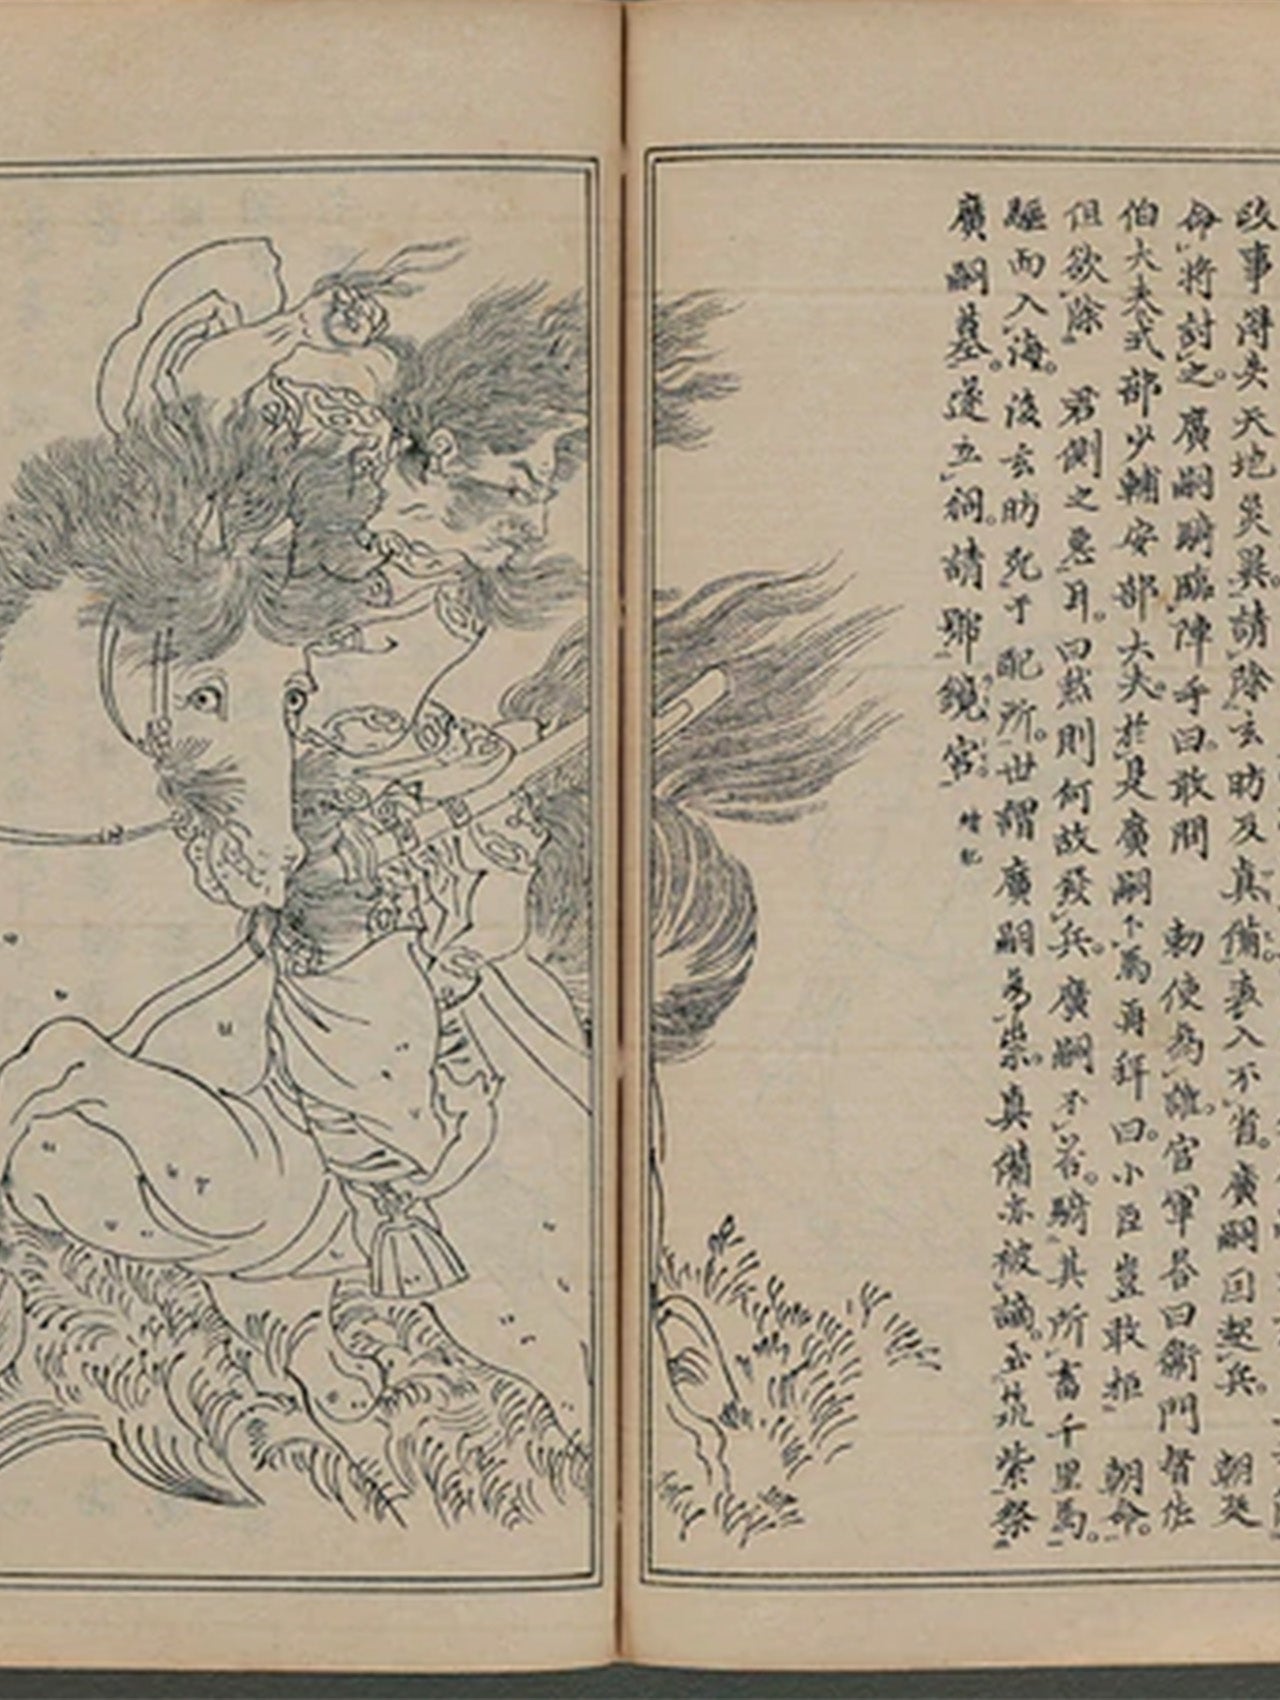 政事得失天地災異請除玄昉及真備表入不省廣嗣因起兵朝廷
命將討之廣嗣騎臨陣手曰敢問　勅使為誰官軍答曰衛門督佐
伯大夫式部少輔安部大夫於是廣嗣下馬再拜曰小臣豈敢拒　朝命
但欲除　君側之惡耳曰然則何故發兵廣嗣不答騎其所畜千里馬
驅而入海後玄昉死于配所世謂廣嗣為祟真備亦被謫至筑紫祭
廣嗣墓遂立祠請號鏡宮